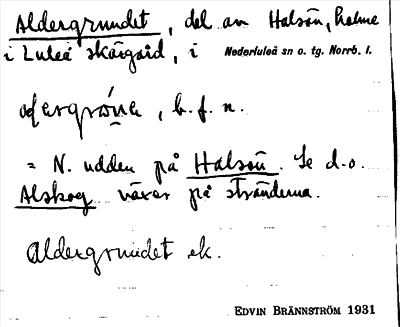 Aldergrundet, del av Halsön, holme
i Luleå skärgård, i Nederluleå sn o. tg. Norrb. l.
b. f. n.
= N. udden på Halsön. Se d. o.
Alskog växer på stränderna.
Aldergrundet ek.
EDVIN BRÄNNSTRÖM 1931